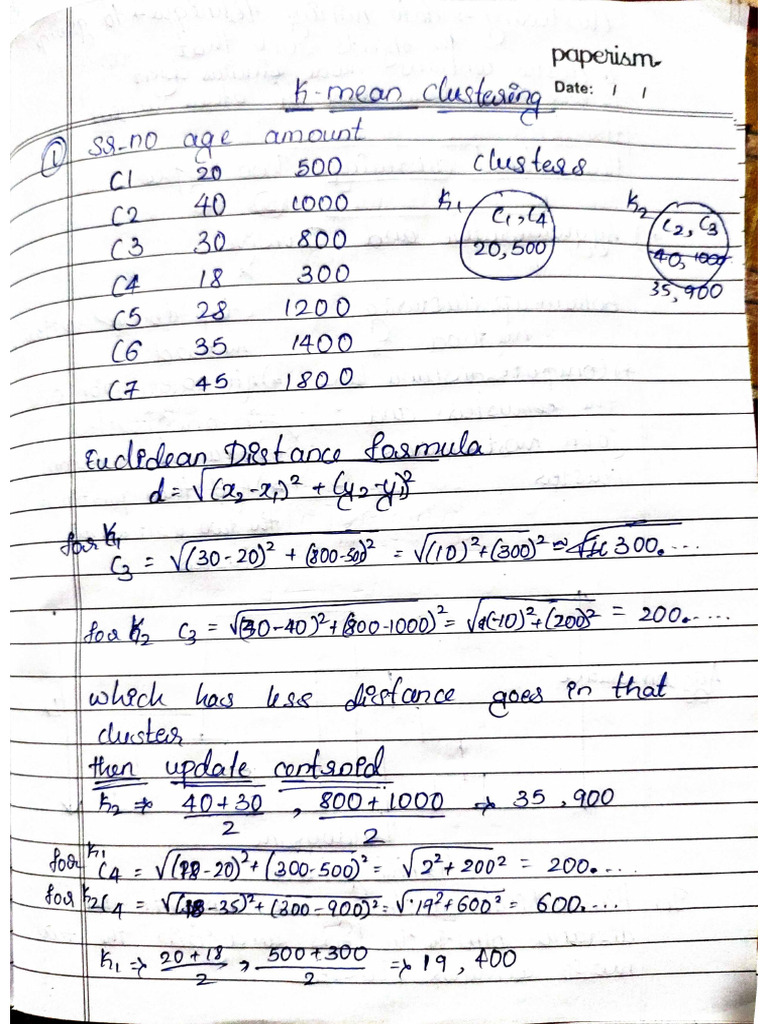 paperism
Date: / /
K-mean clustering
① sr-no age amount
C1 20 500
C2 40 1000
C3 30 800
C4 18 300
C5 28 1200
C6 35 1400
C7 45 1800
clusters
K₁ C₁, C₄
20, 500
K₂ C₂, C₃
40, 1000
35, 900
Euclidean Distance formula
d = √(x₂-x₁)² + (y₂-y₁)²
for K₁
C₃ = √(30-20)² + (800-500)² = √(10)²+(300)² => 300....
for K₂ C₃ = √(30-40)²+(800-1000)² = √(-10)²+(200)² = 200.....
which has less distance goes in that
cluster.
then update centroid
K₂ => 40+30/2 , 800+1000/2 => 35, 900
for K₁ C₄ = √(18-20)²+(300-500)² = √2²+200² = 200....
for K₂ C₄ = √(18-35)²+(300-900)² = √19²+600² = 600....
K₁ => 20+18/2 , 500+300/2 => 19, 400